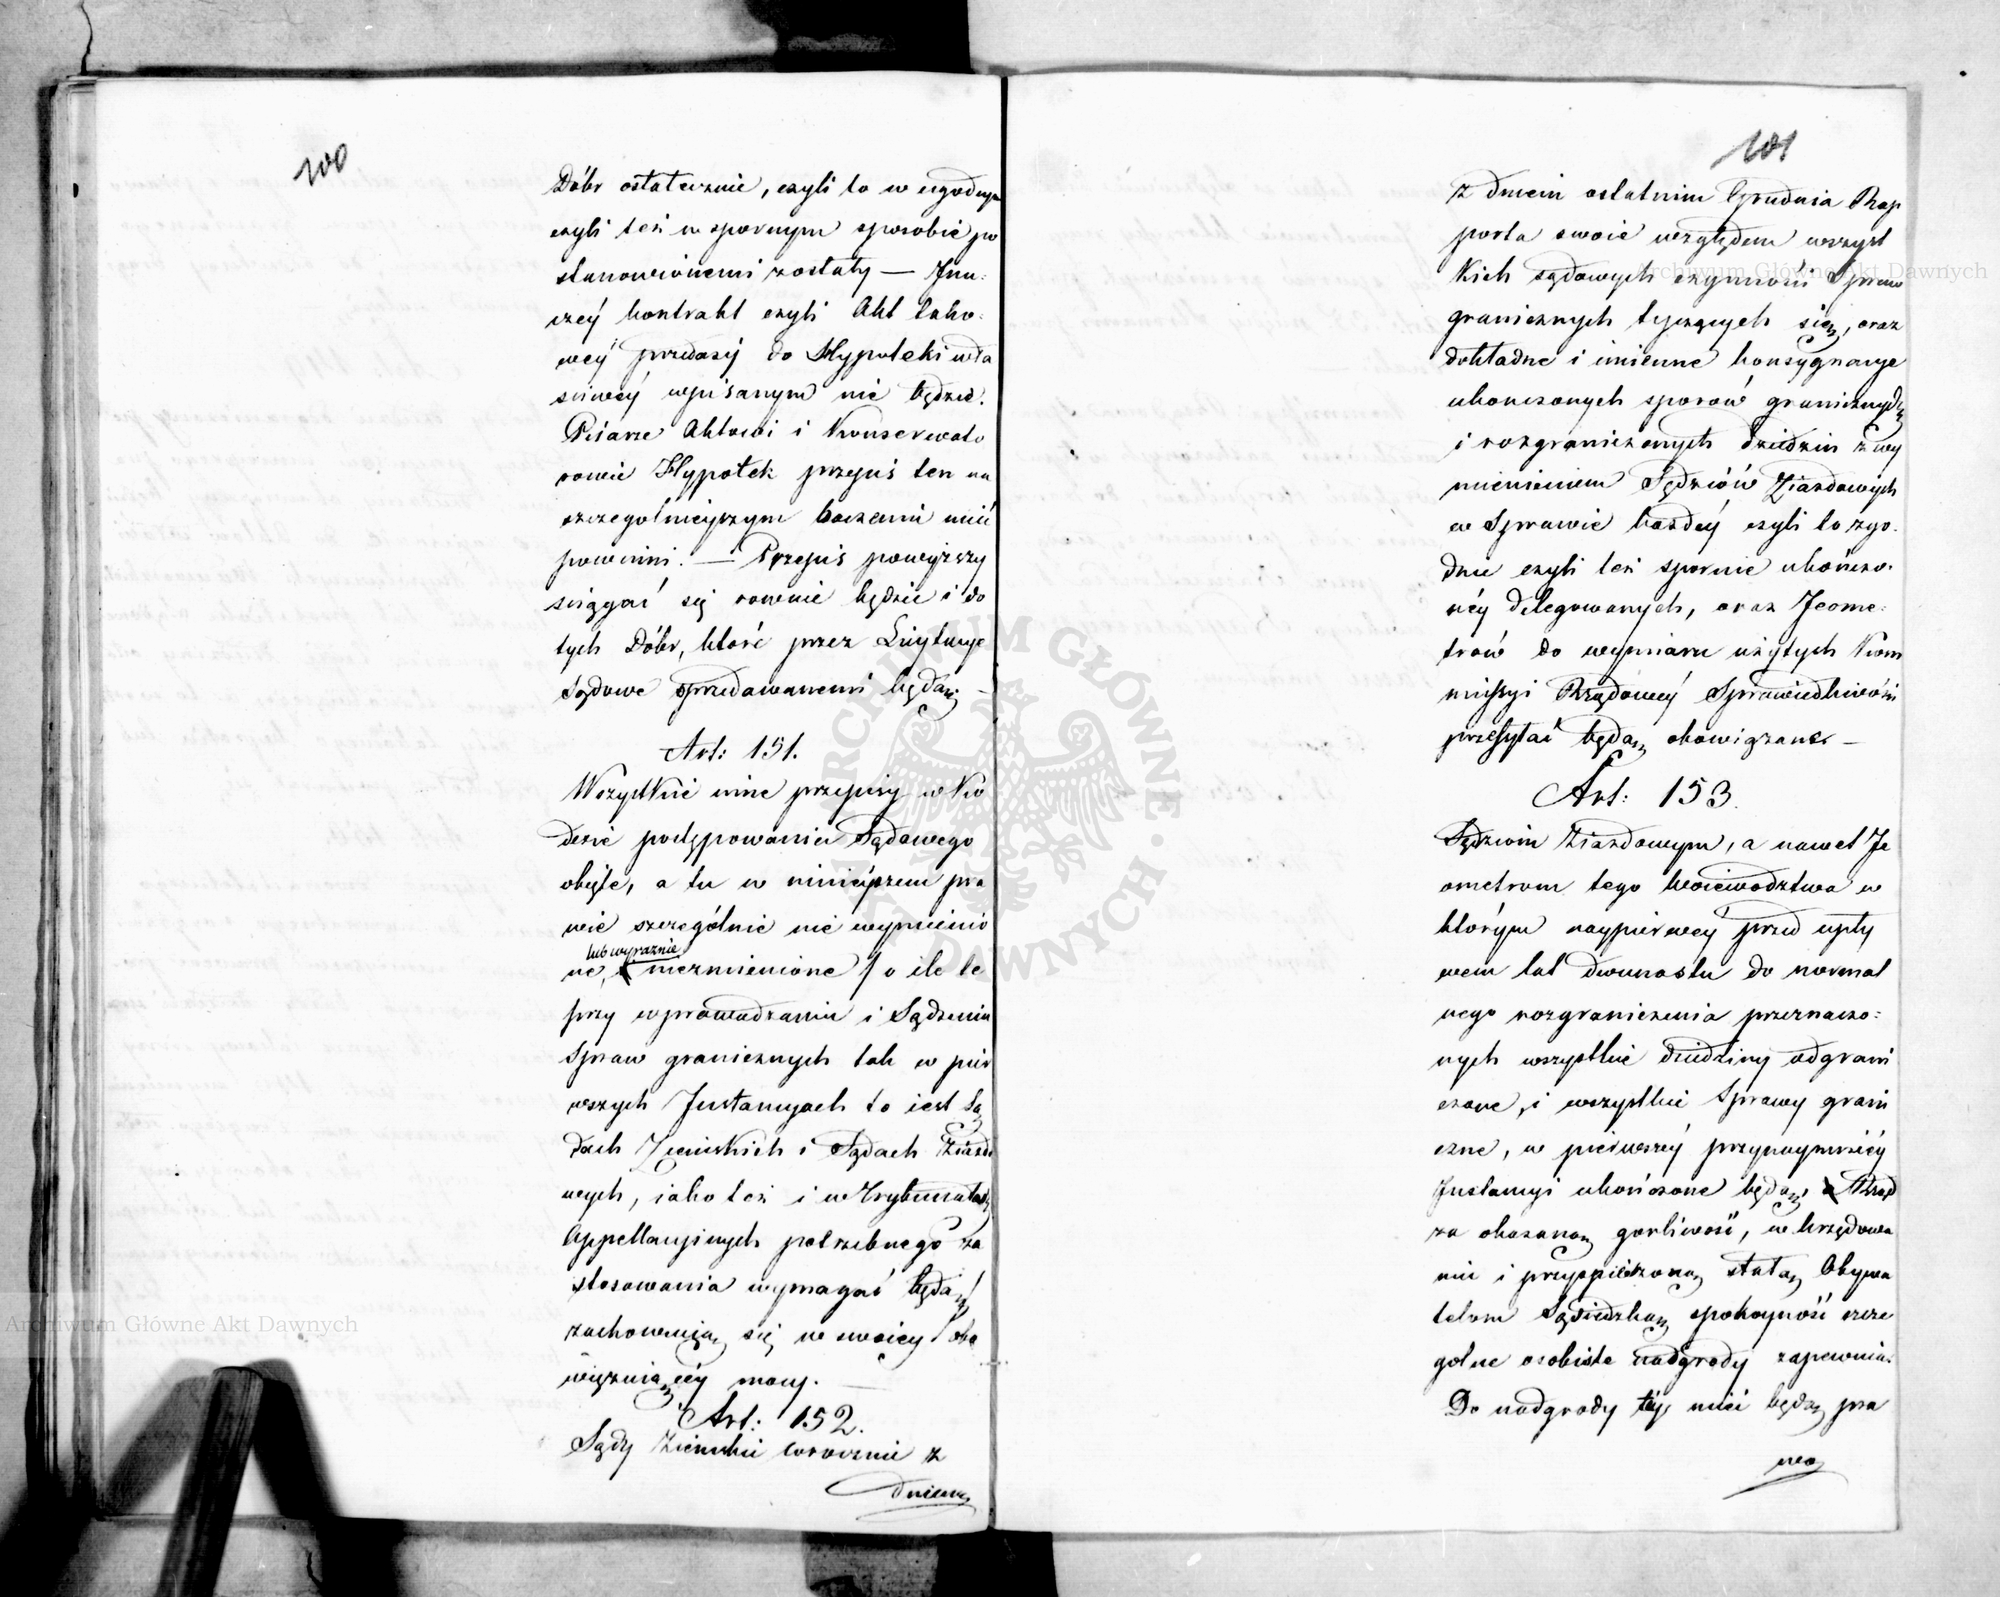 100
Dóbr ostatecznie, czyli to w ugodnym
czyli też w spornym sposobie po
stanowionemi zostały — Ina:
czéy kontrakt czyli Akt tako:
wéy przedaży do Hypoteki wła
sciwéy wpisanym nie będzie.
Pisarze Aktowi i Konserwato
rowie Hypotek przepis ten na
szczegolnieyszym baczeniu mieć
powinni. — Przepis powyższy
sciągać się rownie będzie i do
tych Dóbr, które przez Licytacye
Sądowe sprzedawanemi będą. —
Art: 151.
Wszystkie inne przepisy w Ko
dexie postępowania Sądowego
objęte, a tu w ninieyszem pra
wie szczególnie nie wymienio
lub wyraźnie
ne, niezmienione / o ile te
przy wprowadzaniu i Sądzeniu
Spraw granicznych tak w pier
wszych Instancyach to iest Są
dach Ziemskich i Sądach Ziazdo
wych, iako też i w Trybunałach
Appellacyinych potrzebnego za
stosowania wymagać będą /
zachowuią się w swoiey obo
wiązuiącéy mocy. —
Art: 152.
Sądy Ziemskie corocznie z
dniem
101
z dniem ostatnim Grudnia Rap
porta swoie względem wszyst
kich sądowych czynności Spraw
granicznych tyczących się, oraz
dokładne i imienne konsygnacye
ukończonych sporów granicznych
i rozgraniczonych dziedzin z wy
mienieniem Sędziów Ziazdowych
w Sprawie każdéy czyli to zgo:
dnie czyli też spornie ukończo:
néy delegowanych, oraz Jeome:
trów do wymiaru użytych Kom
missyi Rządowéy Sprawiedliwości
przesyłać będą obowiązane. —
Art: 153.
Sędziom Ziazdowym, a nawet Je
ometrom tego Woiewództwa w
którym naypierwéy przed upły
wem lat dwunastu do normal
nego rozgraniczenia przeznaczo:
nych wszystkie dziedziny odgrani
czone, i wszystkie Sprawy grani
czne, w pierwszéy przynaymniéy
Instancyi ukończone będą, Rząd
za okazaną gorliwość, w Urzędowa
niu i przyspieszoną stałą Obywa
telom Sąsiedzką spokoyność szcze
gólne osobiste nadgrody zapewnia.
Do nadgrody téy mieć będą pra
wo
Archiwum Główne Akt Dawnych
Archiwum Główne Akt Dawnych
ARCHIWUM GŁÓWNE AKT DAWNYCH